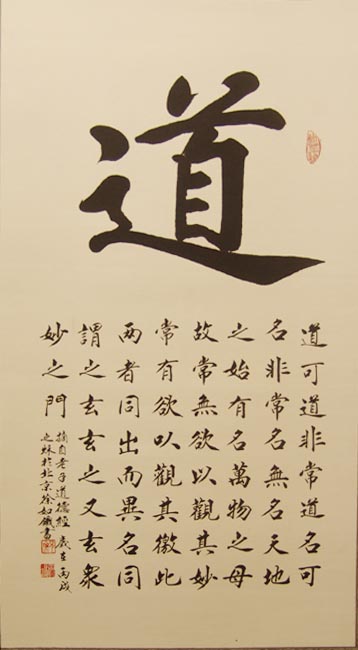 道
道可道非常道名可
名非常名無名天地
之始有名萬物之母
故常無欲以觀其妙
常有欲以觀其徼此
两者同出而異名同
謂之玄玄之又玄衆
妙之門
摘自老子道德經歲在丙戌
之秋於北京徐如